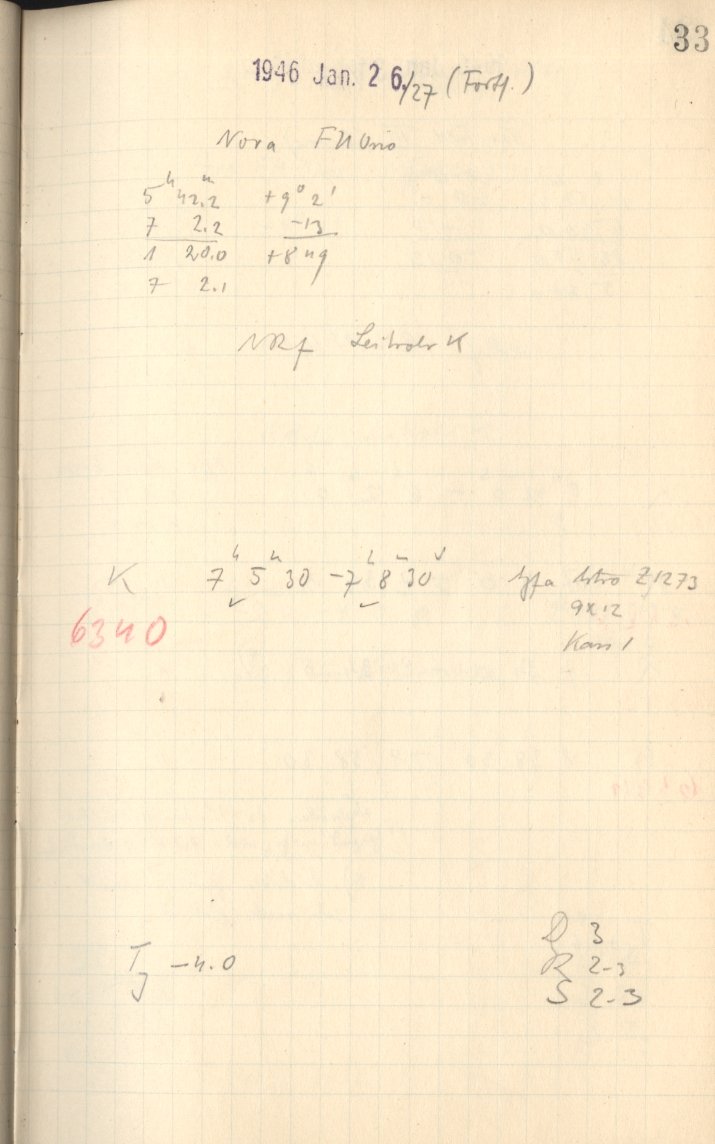 33
1946 Jan. 26./27 (Forts.)
Nova FU Orio
5ʰ 42.2ᵐ +9° 2'
7 2.2 -13
1 20.0 +8 49
7 2.1
Leitrohr K
K 7ʰ 5ᵐ 30 - 7ʰ 8ᵐ 30
Agfa Astro Z 1273
6340
9x12
Kass 1
D 3
T -4.0
R 2-3
S 2-3